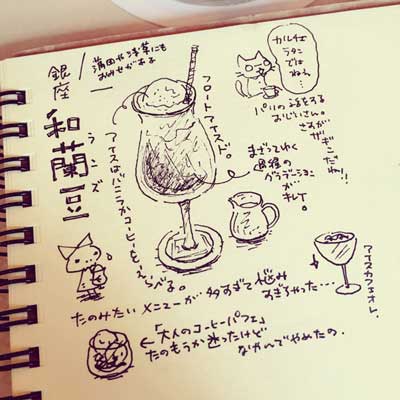 銀座
和蘭豆
らんズ
蒲田や浅草にも
お店があるよ
フロートアイスド。
アイスはバニラかコーヒーを、えらべる。
カルチェ
ラタン
ではねぇ…
パリの話をする
おじいさん。
さすが
ザギンだわ!!
まざってゆく
グラデーションが…
キレイ。
アイスカフェオレ。
たのみたいメニューが多すぎて悩み
すぎちゃった…
←「大人のコーヒーパフェ」
たのもうか迷ったけど
なやんでやめたの。